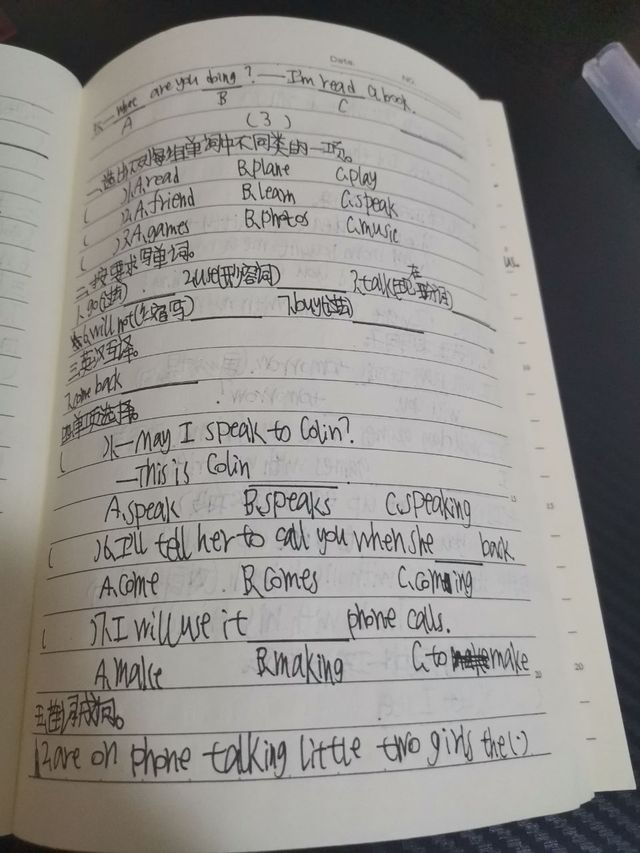 Date. No.
—What are you doing? —I'm read a book.
A B C
(3)
一、选出下列每组单词中不同类的一项。
( )1.A.read B.plane C.play
( )2.A.friend B.learn C.speak
( )3.A.games B.photos C.music
二、按要求写单词。
1.go(过去) 2.use(形容词) 3.talk(现在分词)
6.will not(缩写) 7.buy(过去)
三、英汉互译。
7.come back
四、单项选择。
( ) —May I speak to Colin?
—This is Colin
A.speak B.speaks C.speaking
( )6.I'll tell her to call you when she back.
A.come B.comes C.coming
( )7.I will use it phone calls.
A.make B.making C.to make
五、连词成句。
2.are on phone talking little two girls the(.)
15
20
20